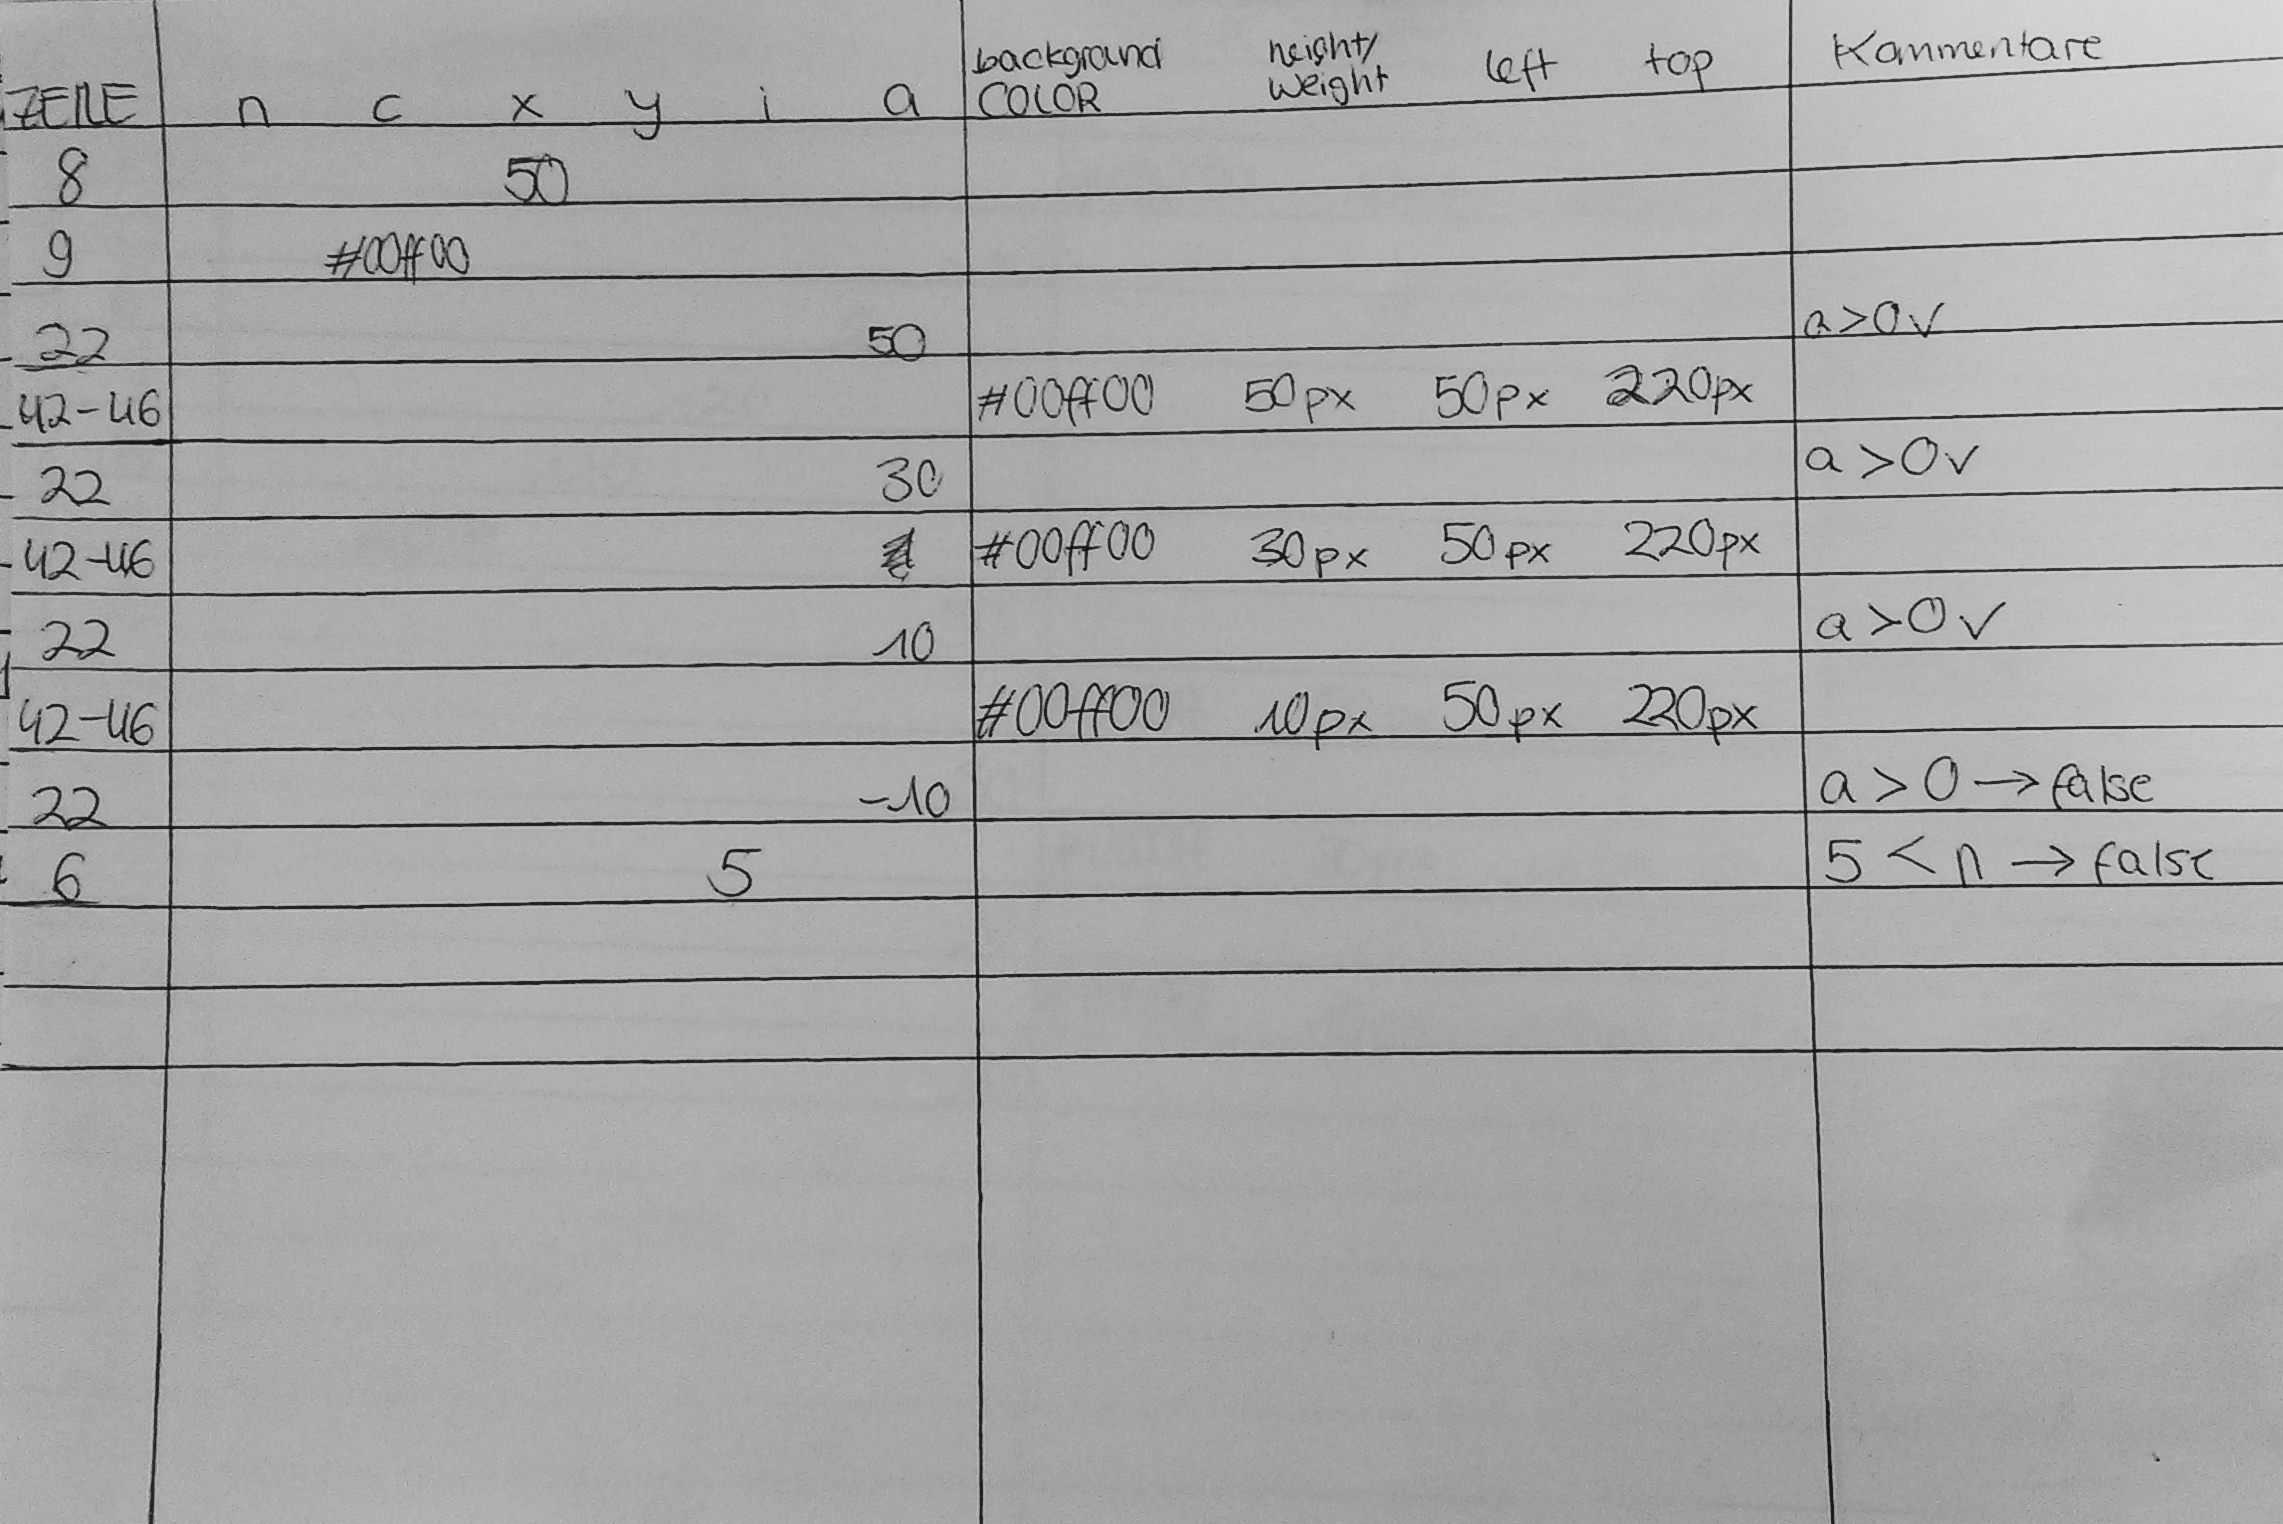 ZEILE n c x y i a background COLOR height/ weight left top Kommentare
8 50
9 #00ff00
22 50 a>0✓
42-46 #00ff00 50px 50px 220px
22 30 a>0✓
42-46 #00ff00 30px 50px 220px
22 10 a>0✓
42-46 #00ff00 10px 50px 220px
22 -10 a>0→false
6 5 5<n→false